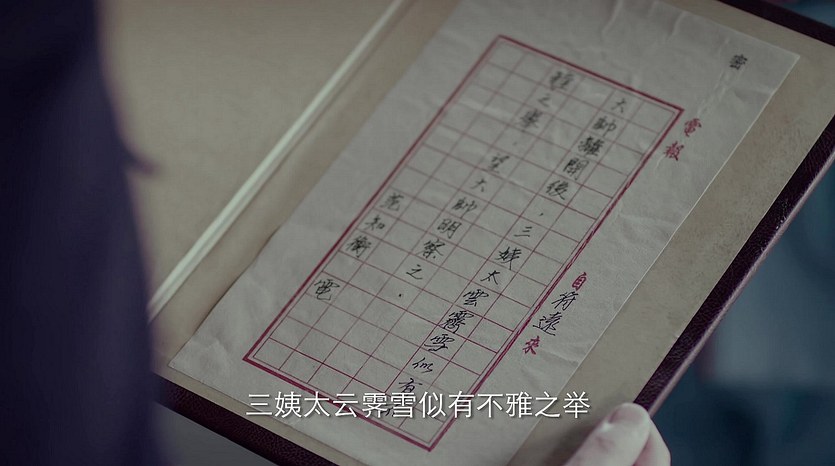 密
電報
自符遠來
大帥離開後，三姨太雲霽雪似有
雅之舉，望大帥明察之。
范知衡 電
三姨太云霁雪似有不雅之举